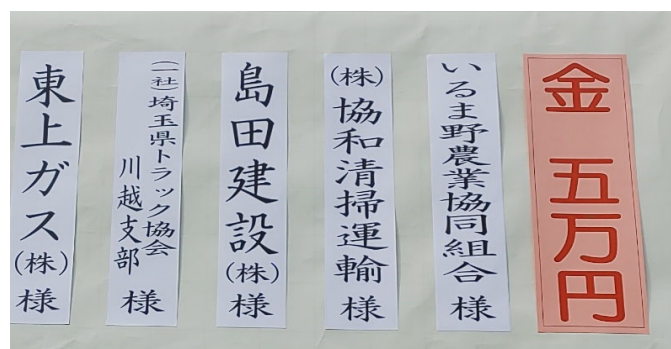 金 五万円
いるま野農業協同組合 様
(株)協和清掃運輸 様
島田建設(株) 様
(一社)埼玉県トラック協会
川越支部 様
東上ガス(株) 様